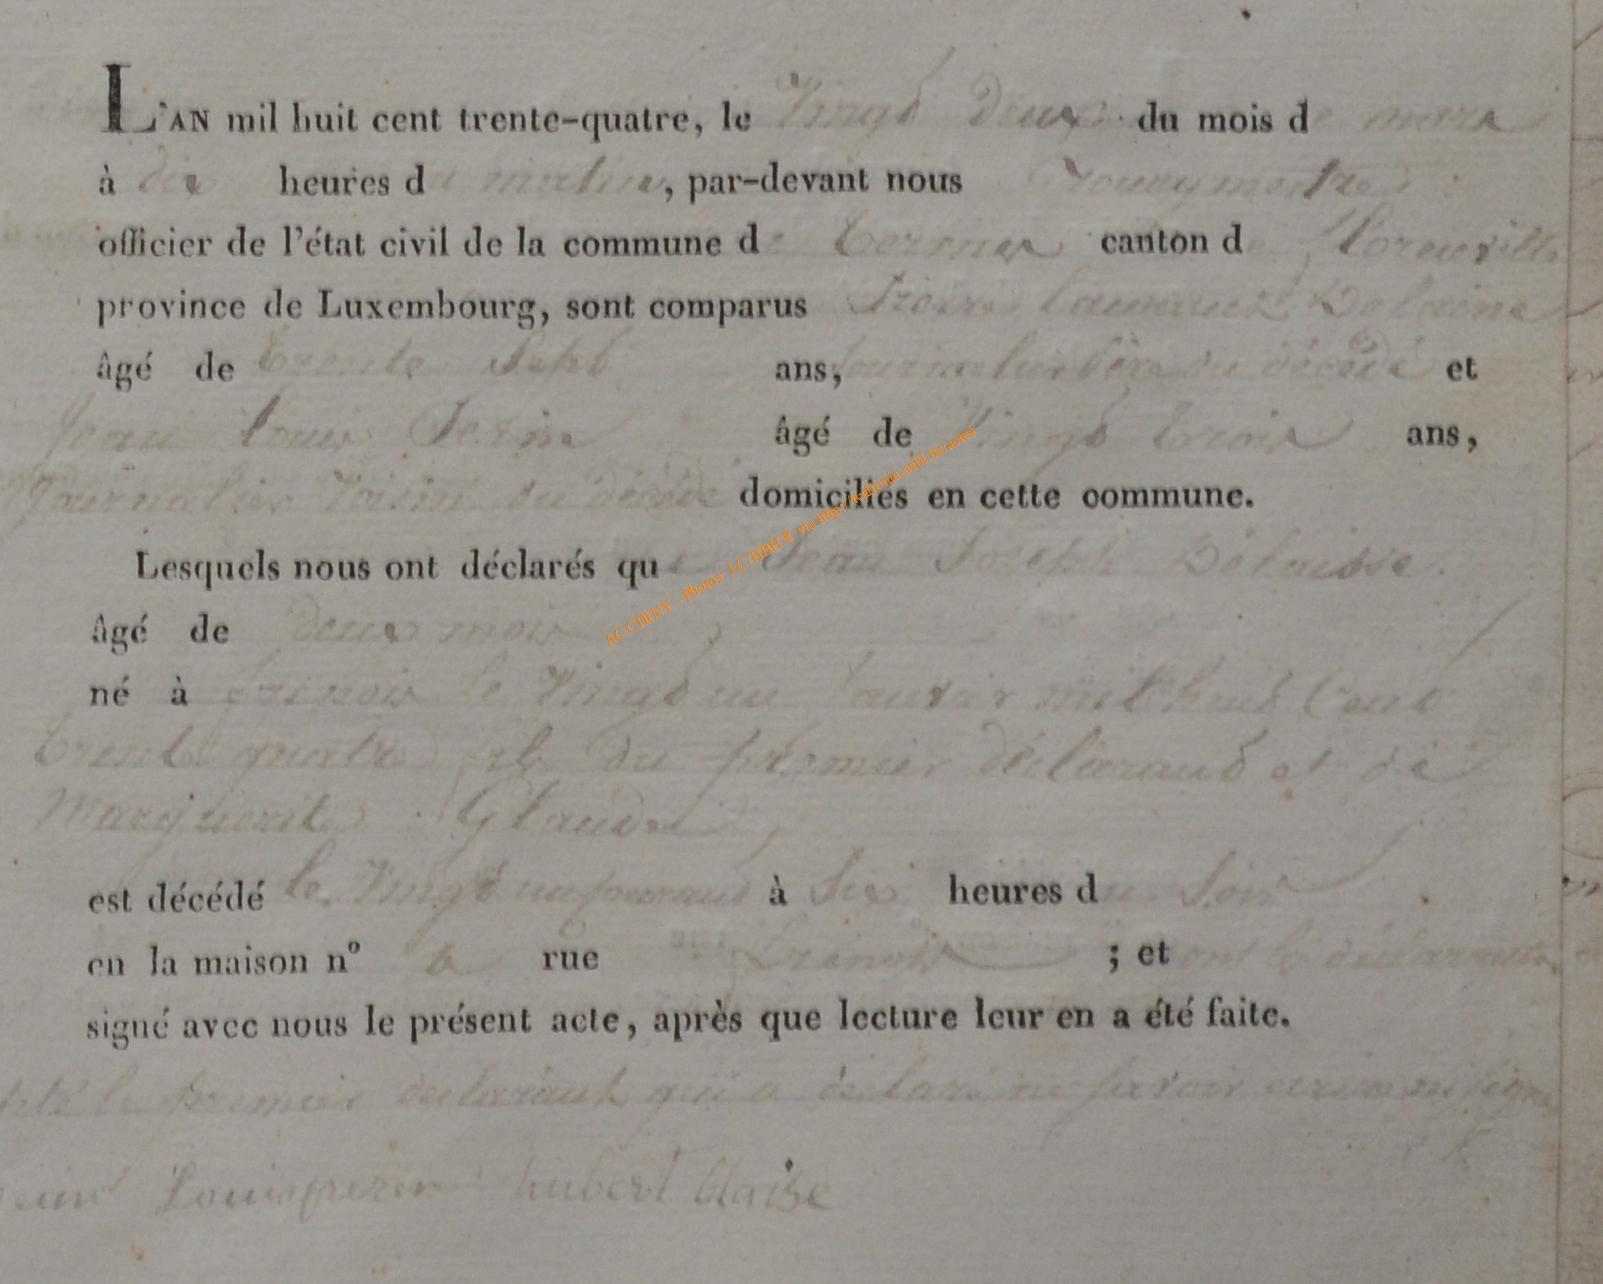 L'AN mil huit cent trente-quatre, le Vingt deux du mois de mars
à dix heures du matin, par-devant nous
officier de l'état civil de la commune de Termes canton de florenville
province de Luxembourg, sont comparus
âgé de trente Sept ans, journalier père du décédé et
Jean Louis Perin âgé de Vingt trois ans,
Journalier Voisin du décédé domiciliés en cette commune.
Lesquels nous ont déclarés que Jean Joseph Délaisse
âgé de deux mois
né à frenois le Vingt un Janvier mil huit Cent
trente quatre fils du premier déclarant et de
Marguerite Glaude
est décédé le Vingt un courant à Six heures du Soir
en la maison nº 6 rue frenois ; et ont les déclarants
signé avec nous le présent acte, après que lecture leur en a été faite.
le premier declarant qui a declaré ne savoir ecrire ni signer
Louis perin hubert blaise
AC CHINY - photos J.C HIBLB @ via http://wallonia-asbl.be/actes